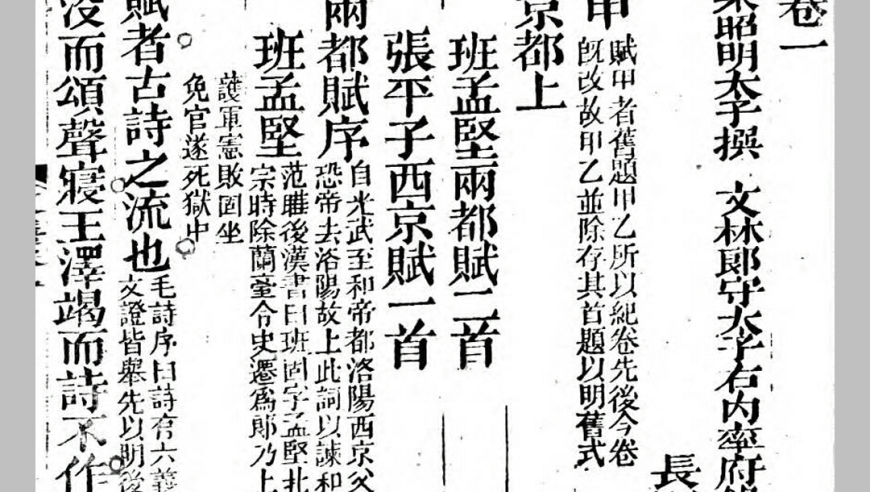 卷一
梁昭明太子撰 文林郎守太子右內率府
長
甲 賦甲者舊題甲乙所以紀卷先後今卷
既改故甲乙並除存其首題以明舊式
京都上
班孟堅兩都賦二首
張平子西京賦一首
兩都賦序 自光武至和帝都洛陽西京父
恐帝去洛陽故上此詞以諫和
班孟堅 范曄後漢書曰班固字孟堅北
宗時除蘭臺令史遷為郎乃上
護軍憲敗固坐
免官遂死獄中
賦者古詩之流也 毛詩序曰詩有六義
文證皆舉先以明後
沒而頌聲寢王澤竭而詩不作